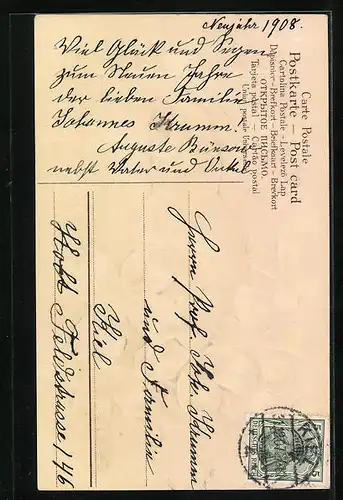 Neujahr 1908.
Viel Glück und Segen
zum Neuen Jahre
der lieben Familie
Johannes Krumm.
Auguste
nebst Vater und Onkel
Carte Postale
Postkarte – Post card
Cartolina Postale – Levelező Lap
Dopisnice – Brefkort – Briefkaart – Brevkort
ОТКРЫТОЕ ПИСЬМО.
Tarjeta postal — Cartão postal
Union postale Universelle
Herrn Prof. Joh. Krumm
und Familie
Kiel
Feldstrasse 146
KIEL
5 5
DEUTSCHES REICH